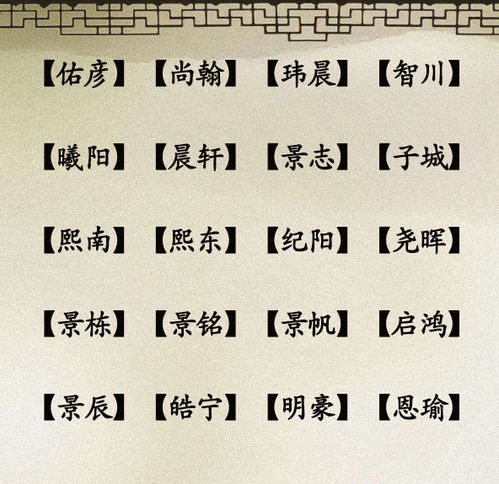 【佑彦】【尚翰】【玮晨】【智川】
【曦阳】【晨轩】【景志】【子城】
【熙南】【熙东】【纪阳】【尧晖】
【景栋】【景铭】【景帆】【启鸿】
【景辰】【皓宁】【明豪】【恩瑜】